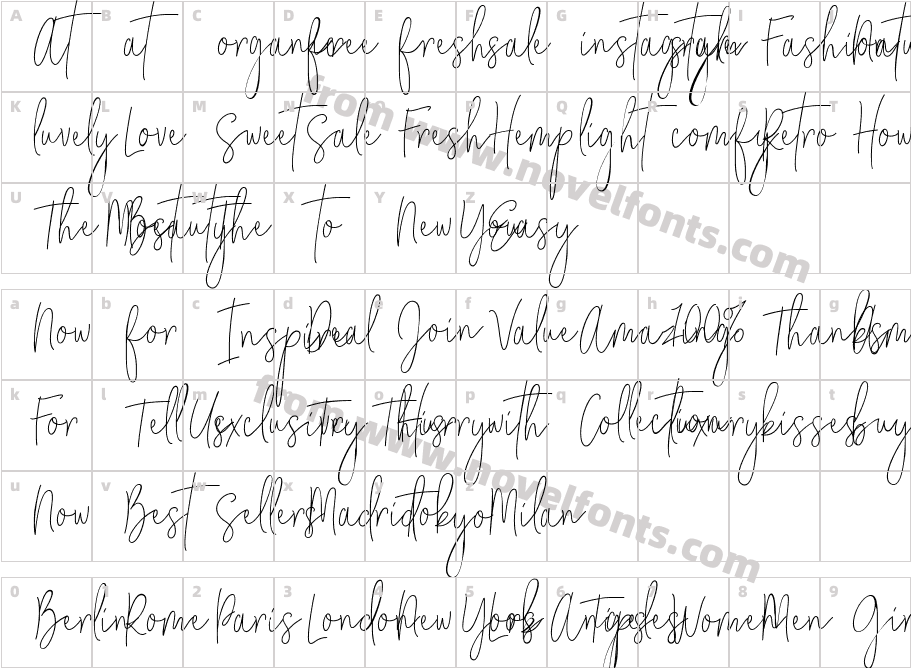 A B C D E F G H I J
At at organic free fresh sale instagram style Fashion
K L M N O P Q R S T
luvely Love Sweet Sale Fresh Hemp light comfy Retro How
U V W X Y Z
The Most Beauty The to New You Easy
from www.novelfonts.com
a b c d e f g h i j
Now for Inspire Deal Join Value Amazing 100% Thanks
k l m n o p q r s t
For Tell Us Exclusive Try This Hurry with Collection Luxury kisses buy
u v w x y z
Now Best Sellers Madrid tokyo Milan
from www.novelfonts.com
0 1 2 3 4 5 6 7 8 9
Berlin Rome Paris London New York Los Angeles Women Men